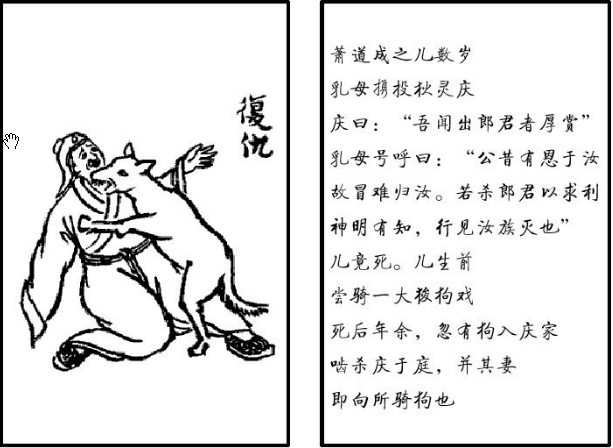 復仇
萧道成之儿数岁
乳母携投狄灵庆
庆曰：“吾闻出郎君者厚赏”
乳母号呼曰：“公昔有恩于汝
故冒难归汝。若杀郎君以求利
神明有知，行见汝族灭也”
儿竟死。儿生前
尝骑一大𣯶狗戏
死后年余，忽有狗入庆家
啮杀庆于庭，并其妻
即向所骑狗也